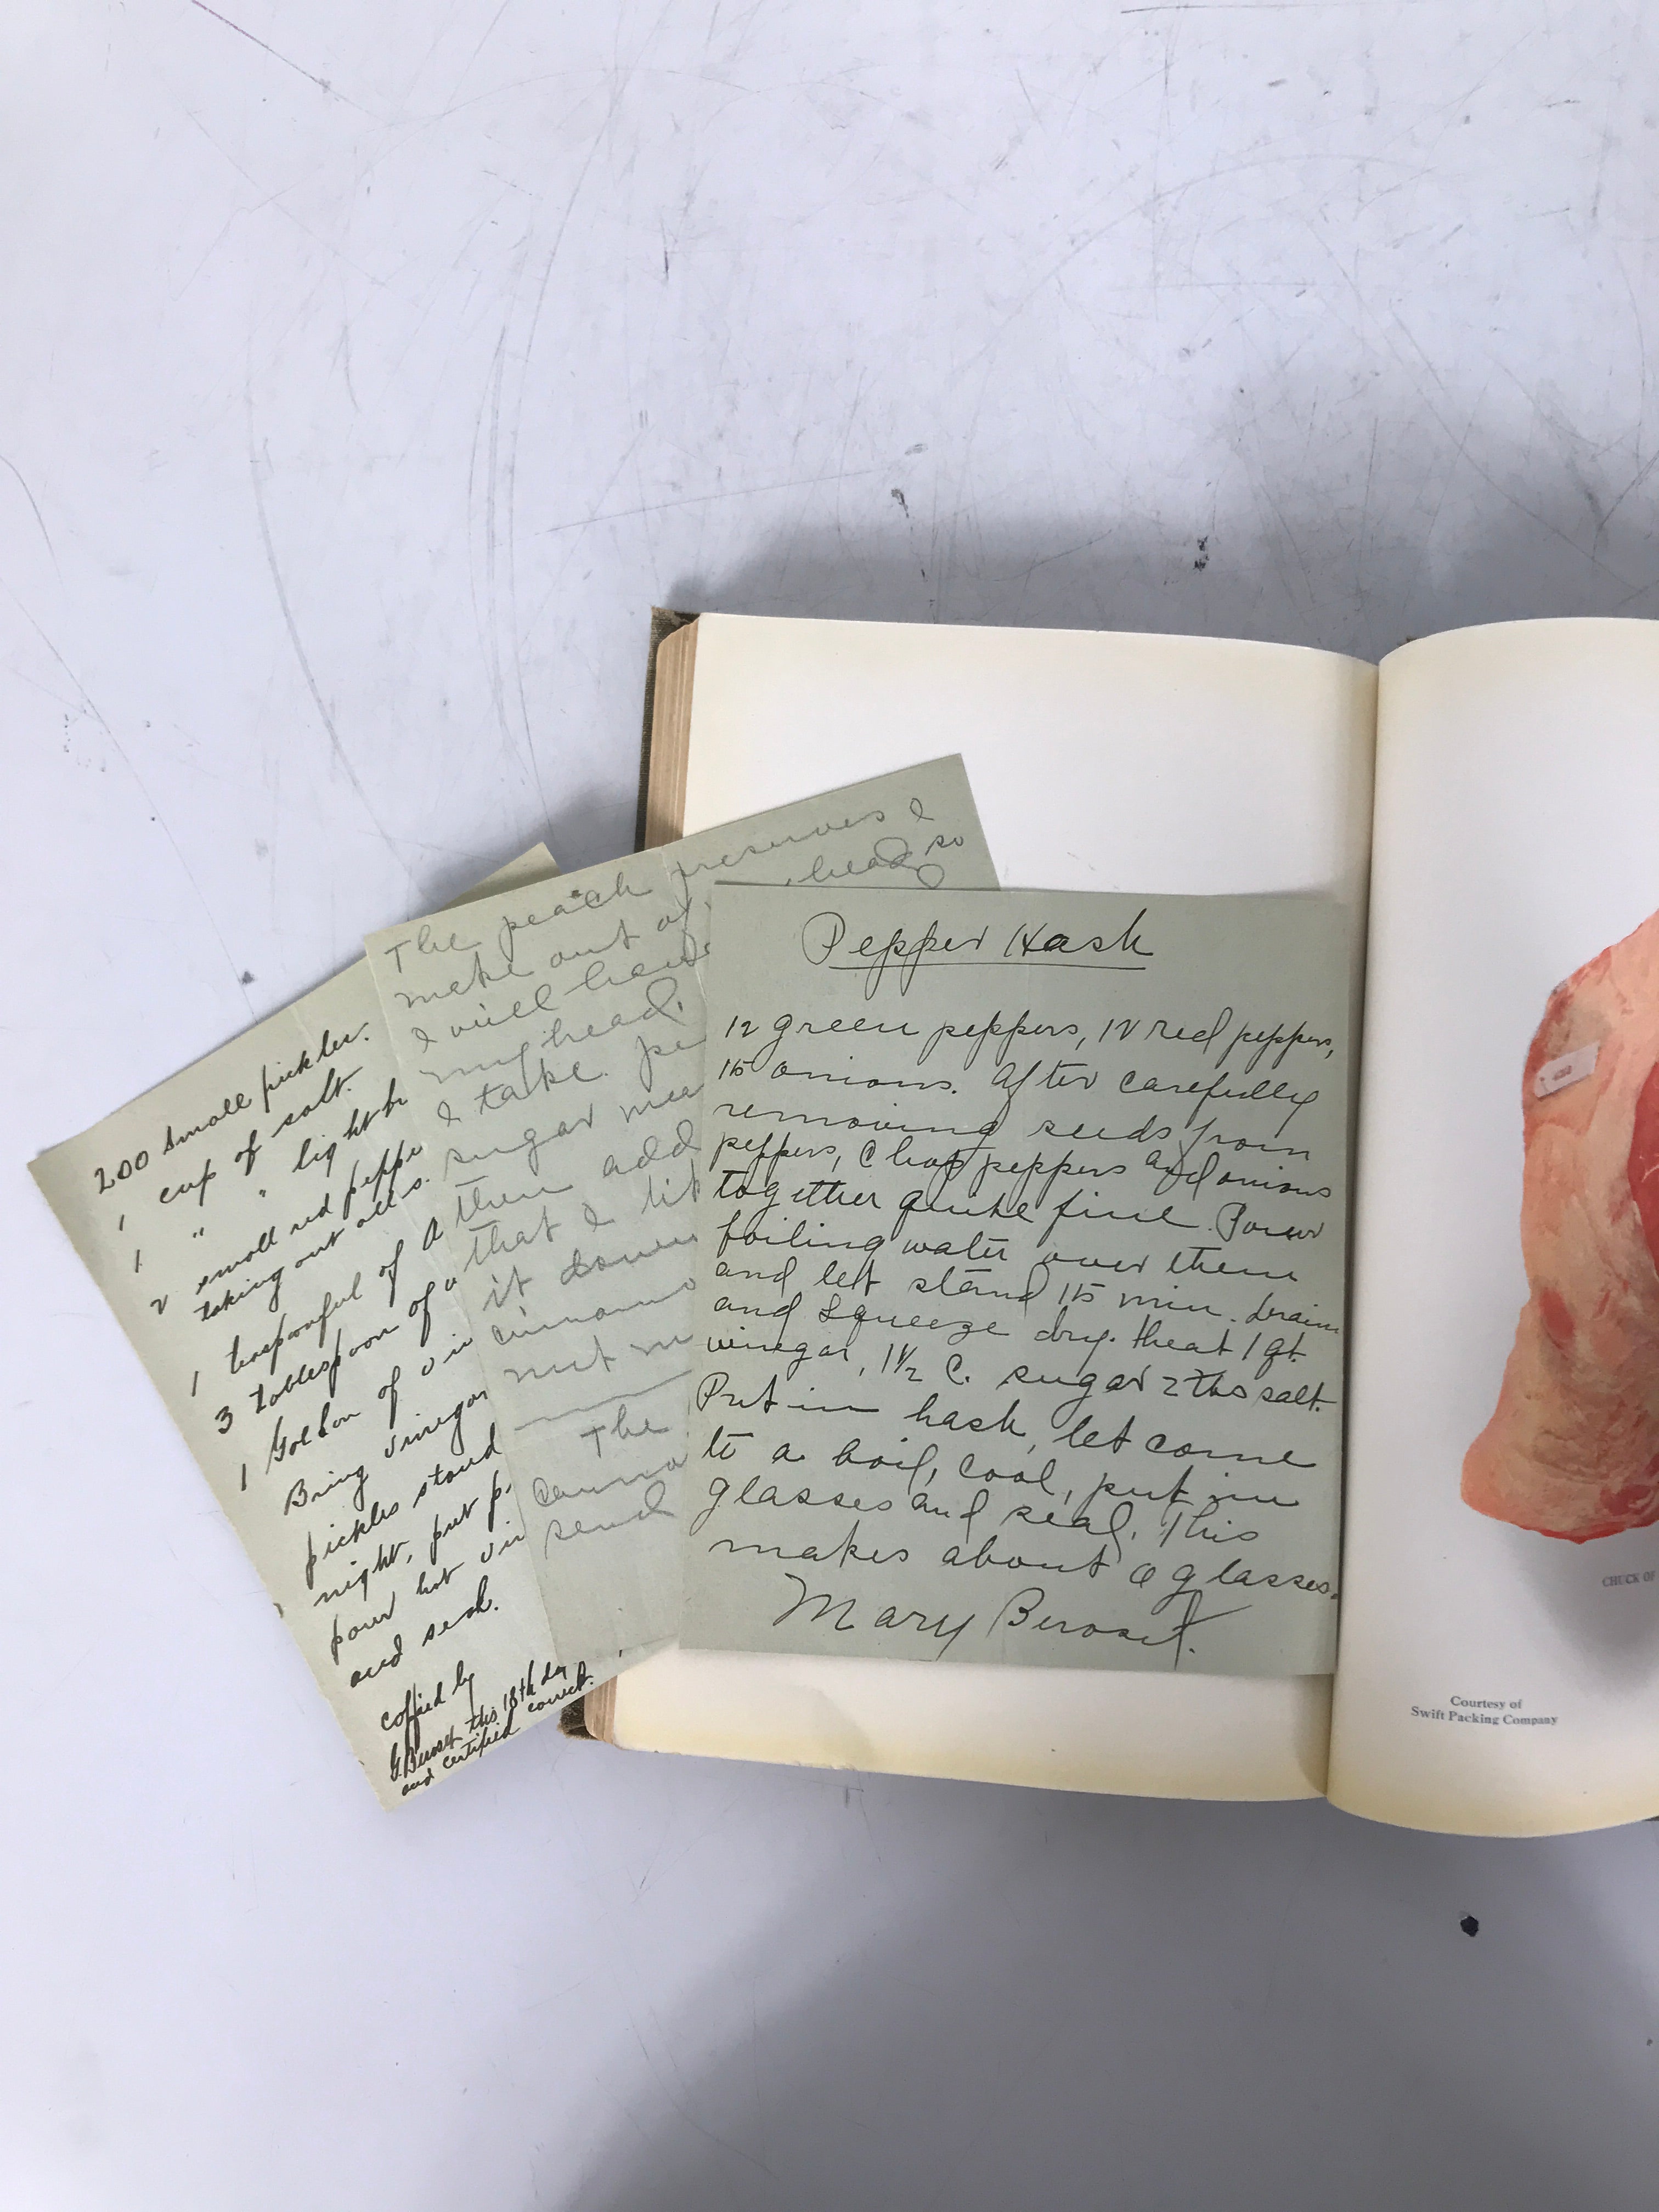 200 small pickles.
1 cup of salt.
1 " " light br
2 small red peppe
taking out all s.
1 teaspoonful of a
3 tablespoon of
1 Gallon of vin
Bring vinegar
pickles stand
night, put p
pour hot vin
and seal.
copied by
this 18th day
and certified correct.
The peach preserves I
make out of, head so
I will have
my head.
I take pe
sugar mea
then add
that I lik
it down
cinnamo
nut m
The
canno
send
Pepper Hash
12 green peppers, 12 red peppers,
15 onions. After carefully
removing seeds from
peppers, Chop peppers and onions
together quite fine. Pour
boiling water over them
and let stand 15 min. Drain
and squeeze dry. Heat 1 qt.
vinegar, 1 1/2 C. sugar 2 tbs salt.
Put in hash, let come
to a boil, cool, put in
glasses and seal. This
makes about glasses.
Mary Beroset.
CHUCK OF
Courtesy of
Swift Packing Company